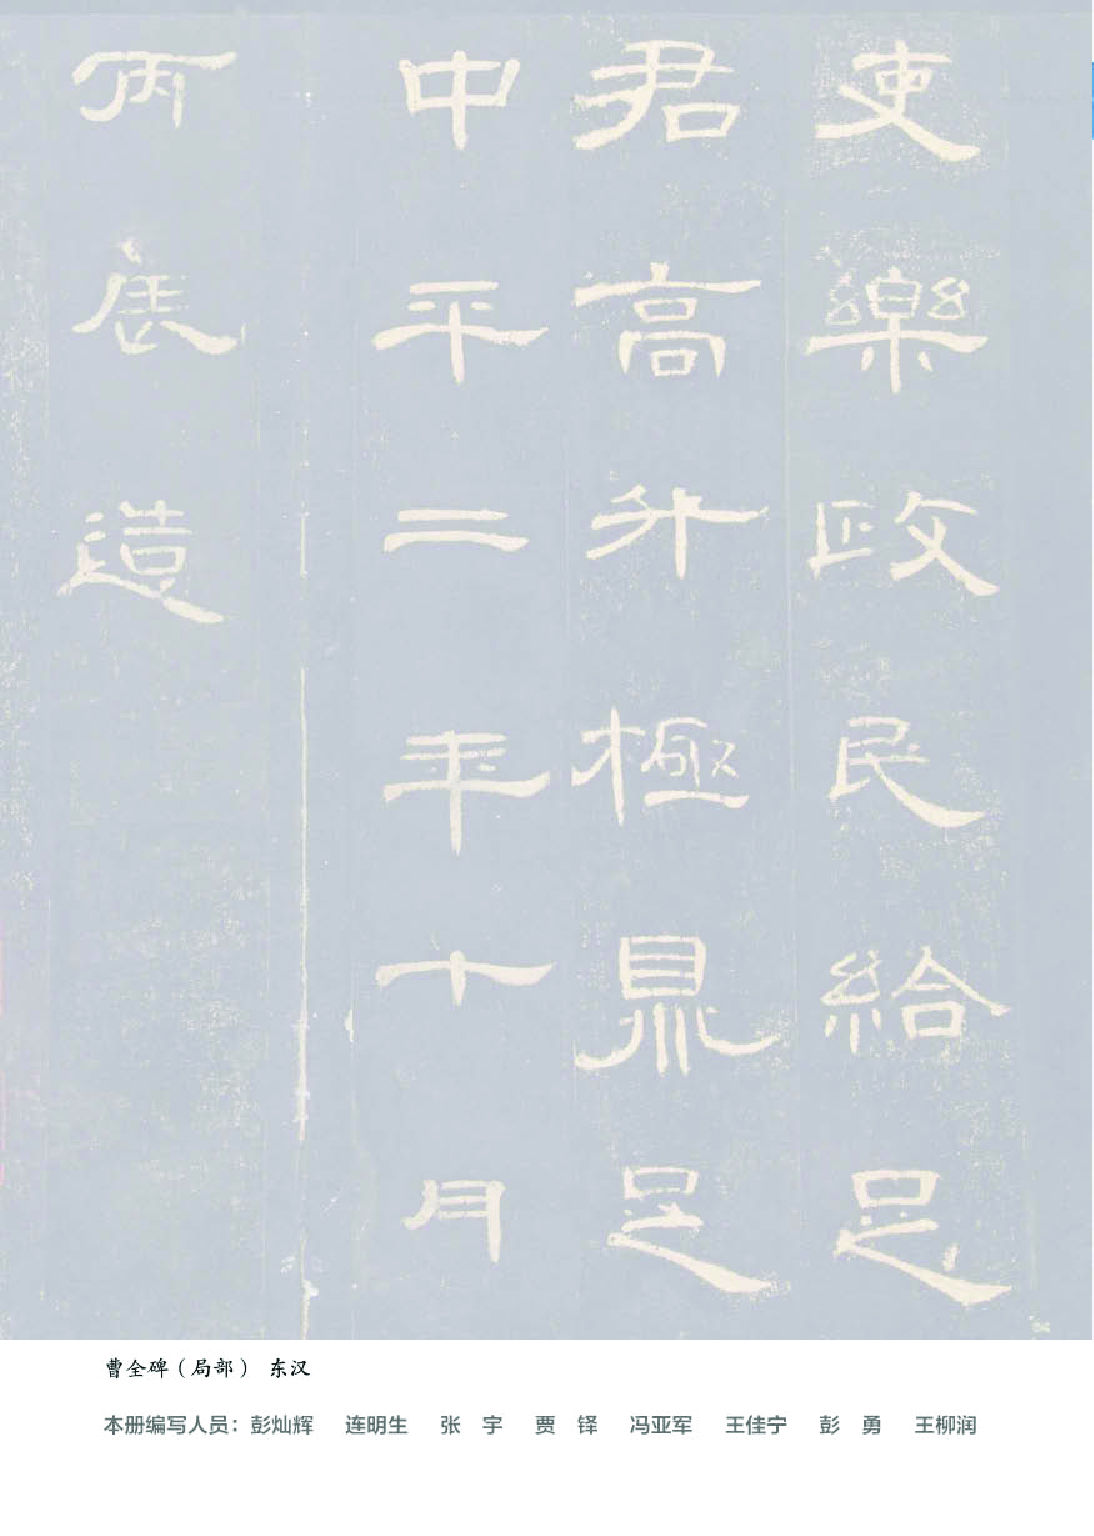 吏樂政民給足
君高升極鼎足
中平二年十月
丙辰造
曹全碑（局部） 东汉
本册编写人员：彭灿辉 连明生 张 宇 贾 铎 冯亚军 王佳宁 彭 勇 王柳润